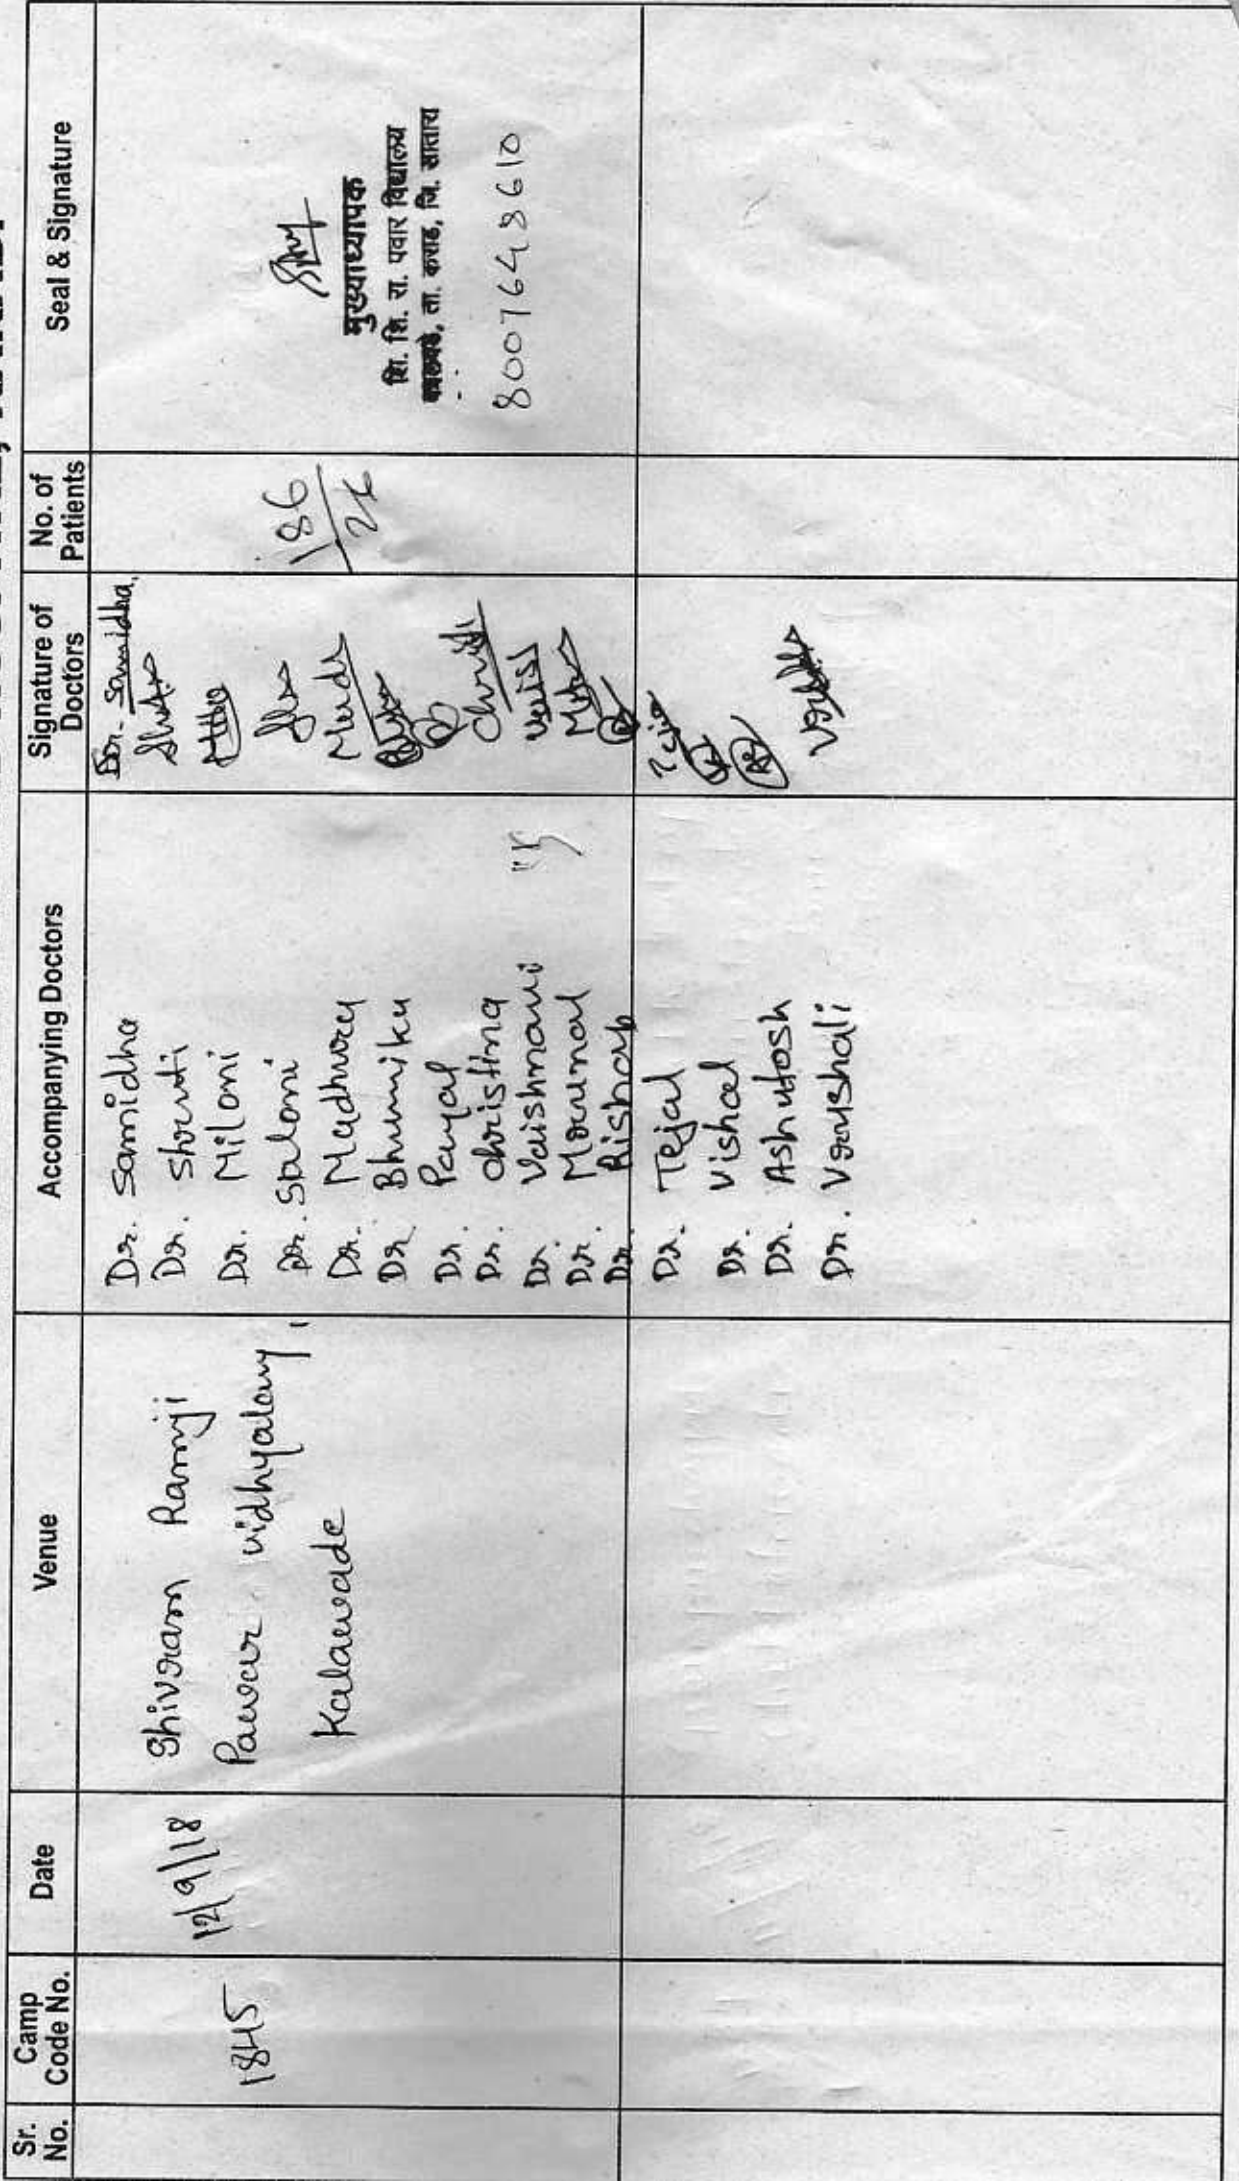 Sr. No.
Camp Code No.
Date
Venue
Accompanying Doctors
Signature of Doctors
No. of Patients
Seal & Signature
1845
12/9/18
Shivram Ramji
Pawar vidhyalay,
Kalawade
Dr. Samidha
Dr. Shruti
Dr. Miloni
Dr. Saloni
Dr. Madhura
Dr. Bhumika
Dr. Payal
Dr. Christina
Dr. Vaishnavi
Dr. Mrunal
Dr. Rishab
Dr. Tejal
Dr. Vishal
Dr. Ashutosh
Dr. Vrushali
Dr. Samidha
186
24
मुख्याध्यापक
शि. शि. रा. पवार विद्यालय
ता. कराड, जि. सातारा
8007648610